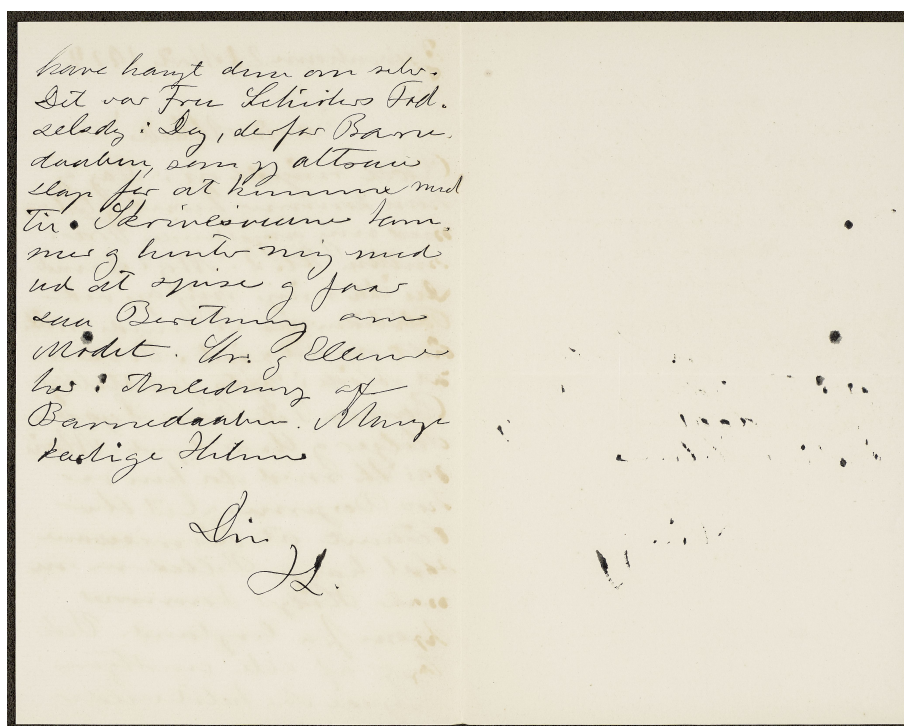 have hængt dem om selv.
Det var Fru Schiølers Fød-
selsdg i Dag, derfor Barne-
daaben, som jg altsaa
slap for at komme med
til. Skrivesvenne kom-
mer g henter mig med
ud at spise g faar
saa Beretning om
Mødet. Chr. g Ellen
her i Anledning af
Barnedaaben. Mange
kærlige Hilsner
Din